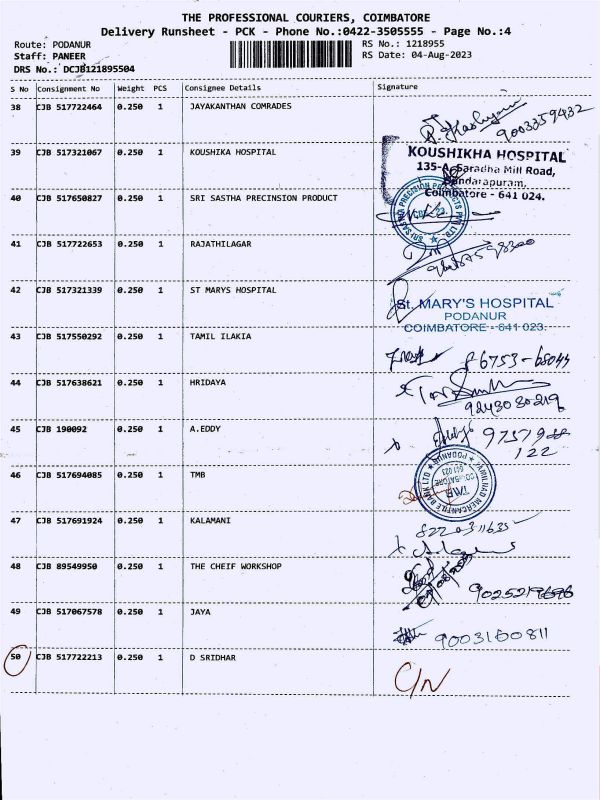 THE PROFESSIONAL COURIERS, COIMBATORE
Delivery Runsheet - PCK - Phone No.:0422-3505555 - Page No.:4
Route: PODANUR
RS No.: 1218955
Staff: PANEER
RS Date: 04-Aug-2023
DRS No.: DCJB121895504
S No Consignment No Weight PCS Consignee Details Signature
38 CJB 517722464 0.250 1 JAYAKANTHAN COMRADES
9003359432
39 CJB 517321067 0.250 1 KOUSHIKA HOSPITAL
KOUSHIKHA HOSPITAL
135-A, Saradha Mill Road,
Sundarapuram,
Coimbatore - 641 024.
40 CJB 517650827 0.250 1 SRI SASTHA PRECINSION PRODUCT
41 CJB 517722653 0.250 1 RAJATHILAGAR
42 CJB 517321339 0.250 1 ST MARYS HOSPITAL
St. MARY'S HOSPITAL
PODANUR
COIMBATORE - 641 023.
43 CJB 517550292 0.250 1 TAMIL ILAKIA
86753-68044
44 CJB 517638621 0.250 1 HRIDAYA
9243080219
45 CJB 190092 0.250 1 A.EDDY
9757988
122
46 CJB 517694085 0.250 1 TMB
TAMILNAD MERCANTILE BANK LTD
PODANUR
COIMBATORE
641 023
TMB
47 CJB 517691924 0.250 1 KALAMANI
8220311635
48 CJB 89549950 0.250 1 THE CHEIF WORKSHOP
9025219696
49 CJB 517067578 0.250 1 JAYA
9003160811
50 CJB 517722213 0.250 1 D SRIDHAR
C/N